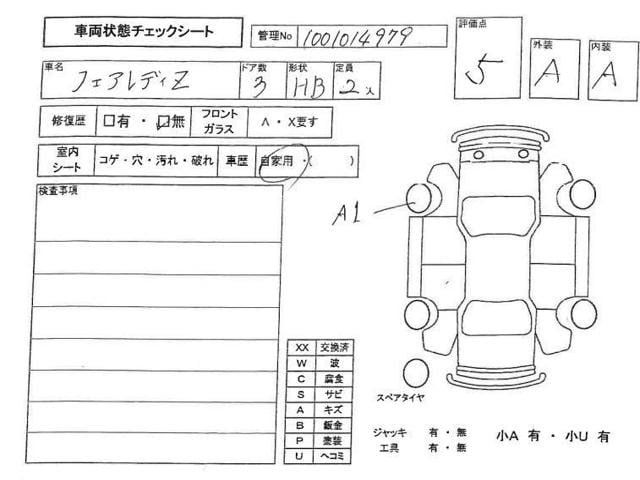 車両状態チェックシート
管理No 1001014979
評価点 5
外装 A
内装 A
車名 フェアレディZ
ドア数 3
形状 HB
定員 2人
修復歴 □有・☑無
フロントガラス A・X要す
室内シート コゲ・穴・汚れ・破れ
車歴 自家用・( )
検査事項
A1
XX 交換済
W 波
C 腐食
S サビ
A キズ
B 鈑金
P 塗装
U ヘコミ
スペアタイヤ
ジャッキ 有・無
工具 有・無
小A 有・小U 有